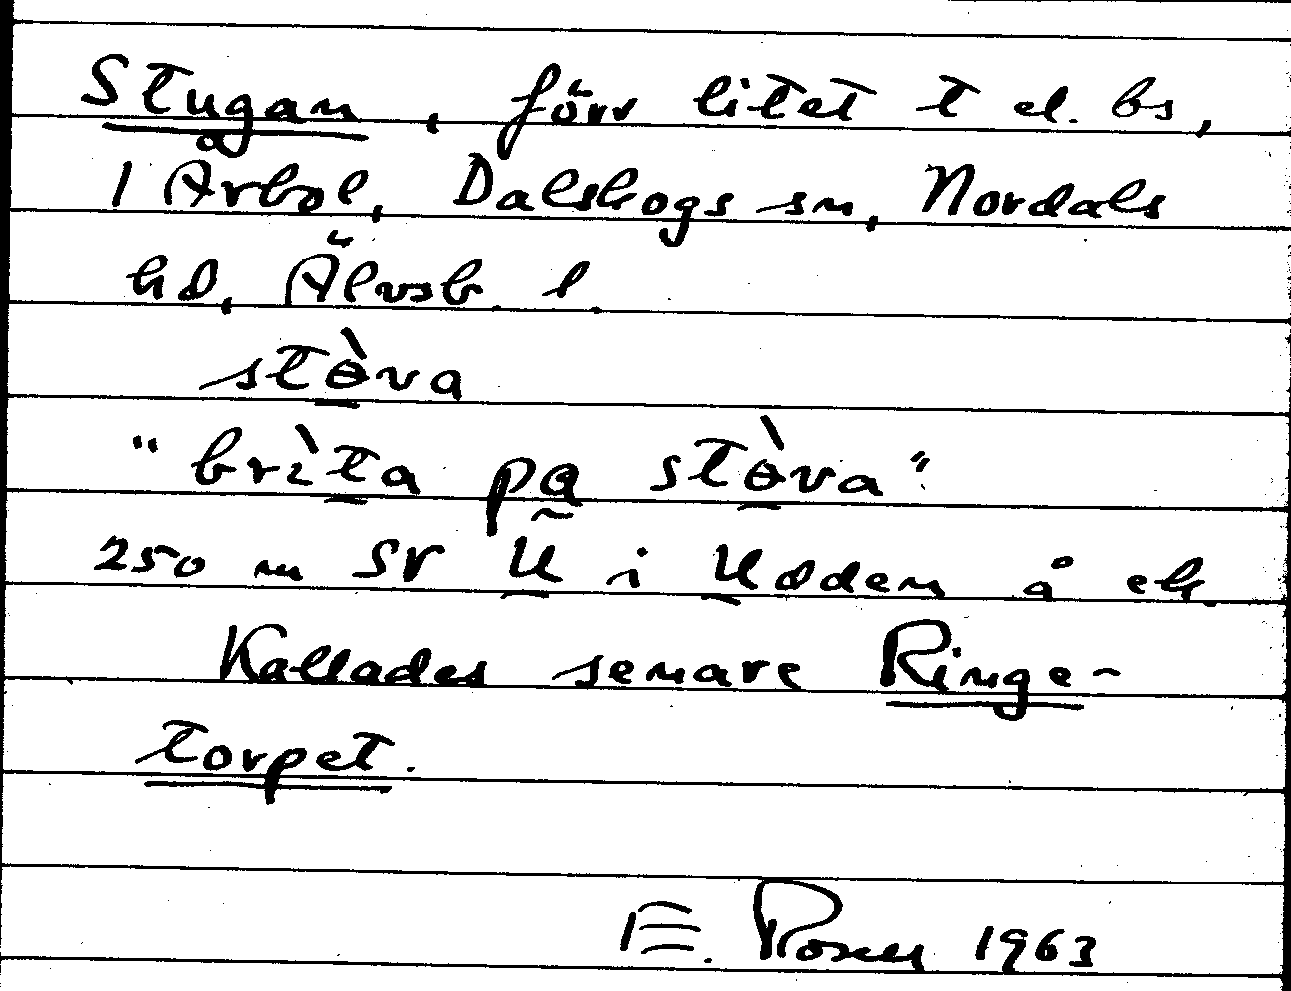 Stugan, förr litet t el. bs,
1 Årbol, Dalskogs sn, Nordals
hd, Älvsb. l.
stɵ̀va
"brìta pa stɵ̀va"
250 m SV U i Udden å ek.
Kallades senare Ringe-
torpet.
E. Rosen 1963